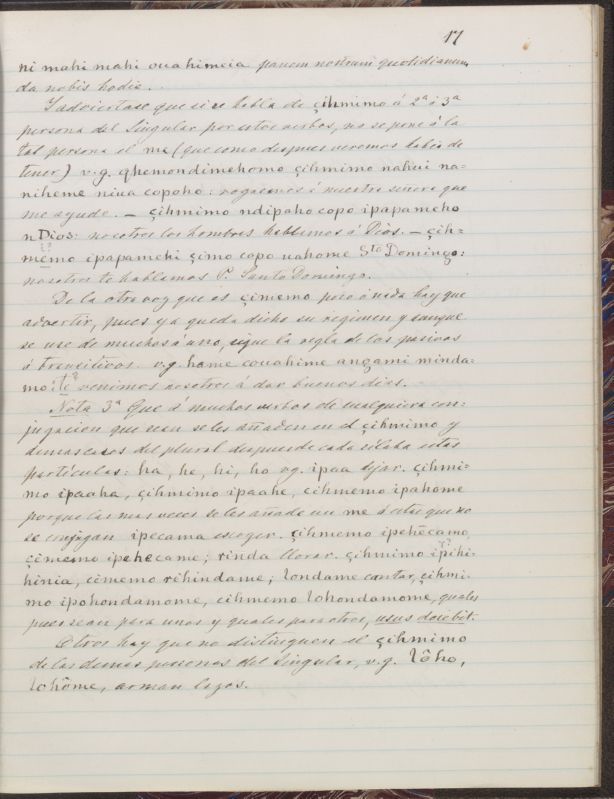 17
ni mahi mahi ouahimeia panem nostrum quotidianum
da nobis hodie.
Y adviertase que si se habla de çihmimo á 2ª ó 3ª
persona del Singular por estos verbos, no se pone á la
tal persona el me (que como despues veremos habia de
tener) v.g. qhemondimehomo çihmimo nahui na=
niheme niua copoho: rogaremos á nuestro señor que
me ayude. — çihmimo ndipaho copo ipapameho
nDios: nosotros los hombres hablamos á Dios. — çih=
memo ipapamehi çimo copo nahome Sto Domingo:
nosotros te hablamos P. Santo Domingo.
De la otra voz que es çimemo pero á nada hay que
advertir, pues ya queda dicho su regimen y aunque
se use de muchos á uno, sique la regla de los pasivos
ó transitivos. v.g. hame couahime angami minda=
mo: te? venimos nosotros á dar buenos dias.
Nota 3ª Que á muchos verbos de cualquiera con=
jugacion que sean se les añaden en el çihmimo y
demas casos del plural despues de cada silaba estas
particulas: ha, he, hi, ho vg. ipaa dejar. çihmi=
mo ipaaha, çihmimo ipaahe, cihmemo ipahome
porque las mas veces se les añade un me á estos que no
se conjugan ipecama escoger. çihmemo ipehēcamo,
çimemo ipehecame; rinda llorar. çihmimo ipihi=
hinia, cimemo rihindame; londame cantar, çihmi=
mo ipohondamome, cihmemo lohondamome, quales
pues sean para unos y quales para otros, usus docebit.
Otros hay que no distinguen el çihmimo
de las demas personas del Singular, v.g. lôho,
lohôme, arman lazos.